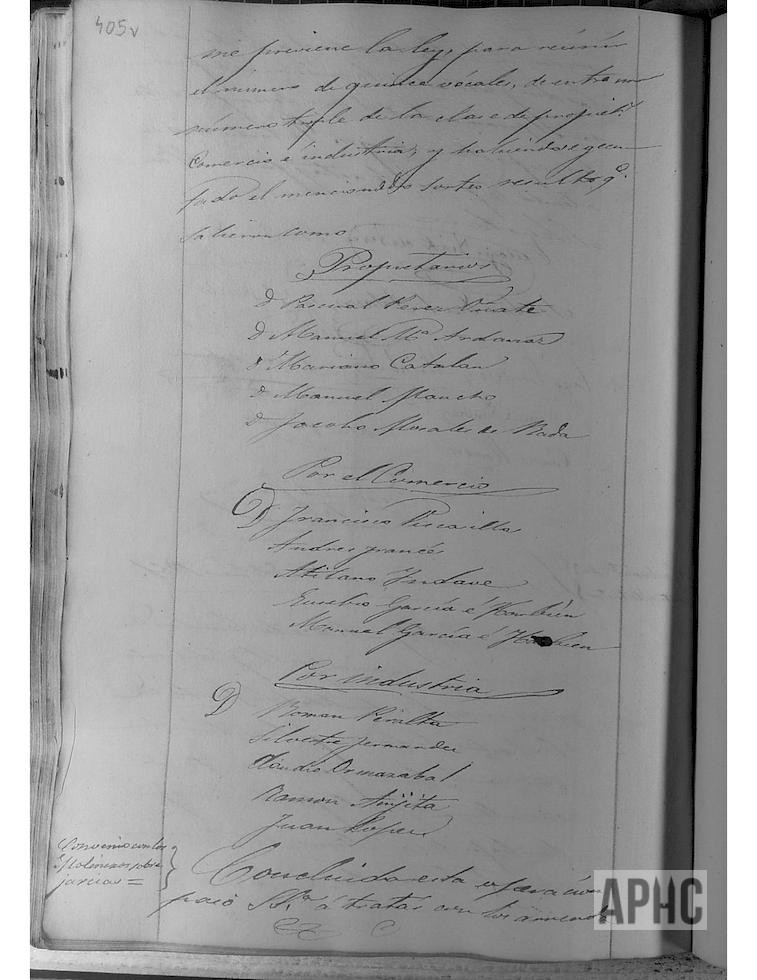 405v
me previene la ley, para reunir
el número de quince vocales, de entre un
número triple de la clase de propiet.s
Comercio e industria, y habiendose ejecu-
tado el mencionado sorteo resultó q.e
salieron como
Propietarios
D Pascual Perez Oñate
D Manuel M.a Ardanaz
D Mariano Catalan
D Manuel Mancho
D Jacobo Morales de Rada
Por el Comercio
D Francisco
Andres
Atilano Indave
Eusebio García é
Manuel García é
Por industria
D Roman Peralta
Silvestre Fernandez
Claudio Ormazabal
Ramon
Juan Lopez
Convenio con los
sobre
=
Concluida esta operación
pasó S.S.a á tratar con los
APHC